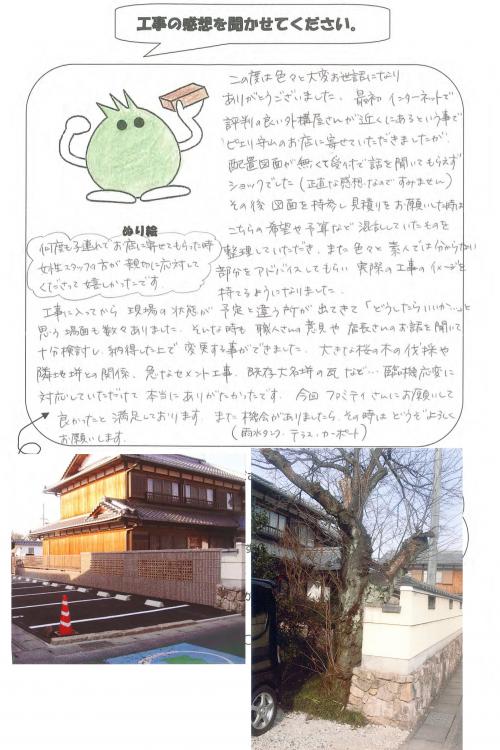 工事の感想を聞かせてください。
この度は色々と大変お世話になり
ありがとうございました。最初インターネットで
評判の良い外構屋さんが近くにあるという事で
ピエリ守山のお店に寄せていただきましたが、
配置図面が無くて受付で話を聞いてもらえず
ショックでした(正直な感想なのですみません)
その後 図面を持参し見積りをお願いした時は
こちらの希望や予算など混乱していたものを
整理していただき、また色々と素人では分からない
部分をアドバイスしてもらい 実際の工事のイメージを
持てるようになりました。
ぬり絵
何度も子連れでお店に寄せてもらった時
女性スタッフの方が親切に応対して
くださって嬉しかったです。
工事に入ってから 現場の状態が 予定と違う所が出てきて「どうしたらいいか…」と
思う場面も数々ありました。そんな時も 職人さんの意見や 店長さんのお話を聞いて
十分検討し、納得した上で変更する事ができました。大きな桜の木の伐採や
隣地塀との関係、急なセメント工事、既存大名塀の瓦など… 臨機応変に
対応していただけて本当にありがたかったです。今回ファミティさんにお願いして
良かったと満足しております。また機会がありましたら、その時は どうぞよろしく
お願いします。 (雨水タンク・テラス・カーポート)